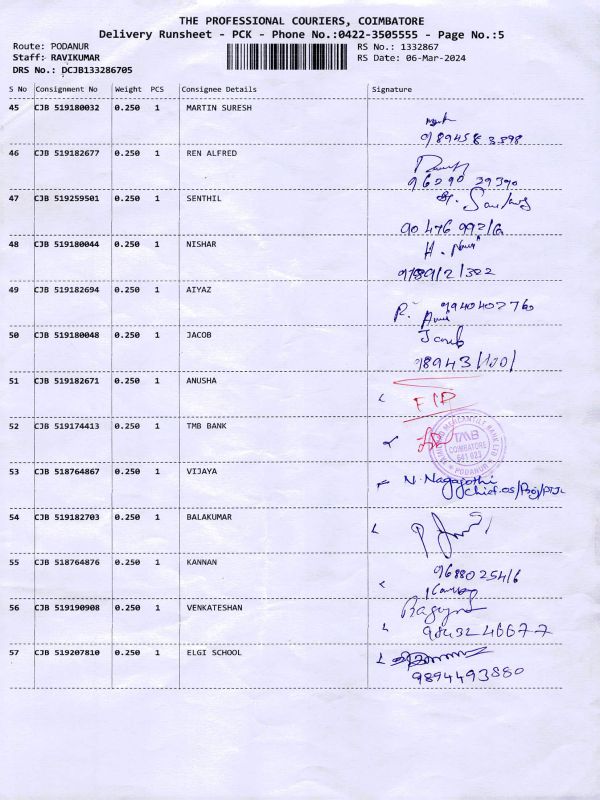 THE PROFESSIONAL COURIERS, COIMBATORE
Delivery Runsheet - PCK - Phone No.:0422-3505555 - Page No.:5
Route: PODANUR
RS No.: 1332867
Staff: RAVIKUMAR
RS Date: 06-Mar-2024
DRS No.: DCJB133286705
S No Consignment No Weight PCS Consignee Details Signature
45 CJB 519180032 0.250 1 MARTIN SURESH
46 CJB 519182677 0.250 1 REN ALFRED
96290 39390
47 CJB 519259501 0.250 1 SENTHIL
48 CJB 519180044 0.250 1 NISHAR
49 CJB 519182694 0.250 1 AIYAZ
9940402760
50 CJB 519180048 0.250 1 JACOB
Jacob
51 CJB 519182671 0.250 1 ANUSHA
52 CJB 519174413 0.250 1 TMB BANK
TMB
COIMBATORE
641 023
PODANUR
53 CJB 518764867 0.250 1 VIJAYA
N. Nagajothi
54 CJB 519182703 0.250 1 BALAKUMAR
55 CJB 518764876 0.250 1 KANNAN
9688025416
56 CJB 519190908 0.250 1 VENKATESHAN
9843246677
57 CJB 519207810 0.250 1 ELGI SCHOOL
9894493880